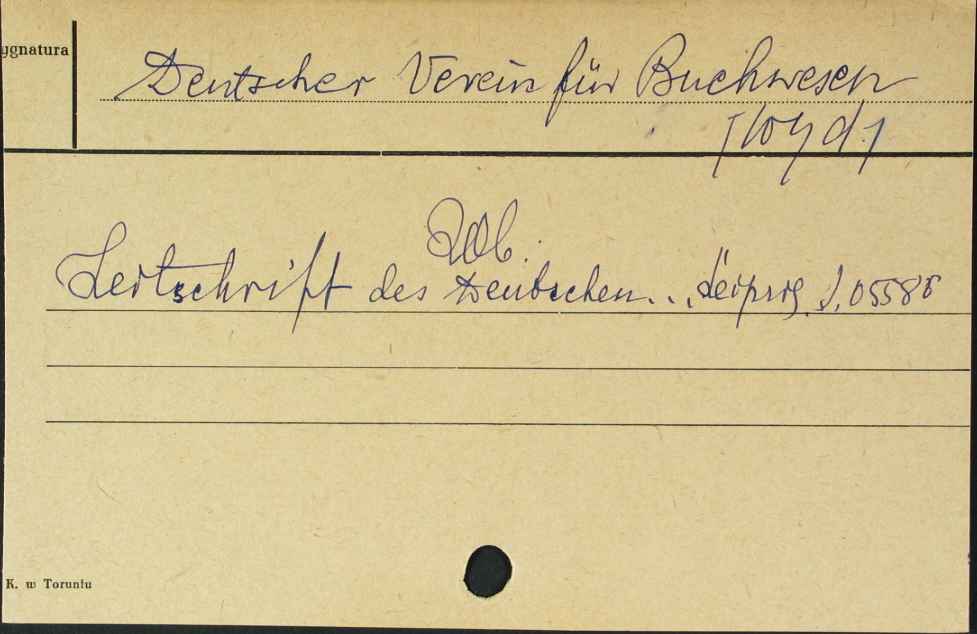 ygnatura
Deutscher Verein für Buchwesen
[wyd.]
Zob.
Zeitschrift des Deutschen... Leipzig J. 05585
K. w Toruniu